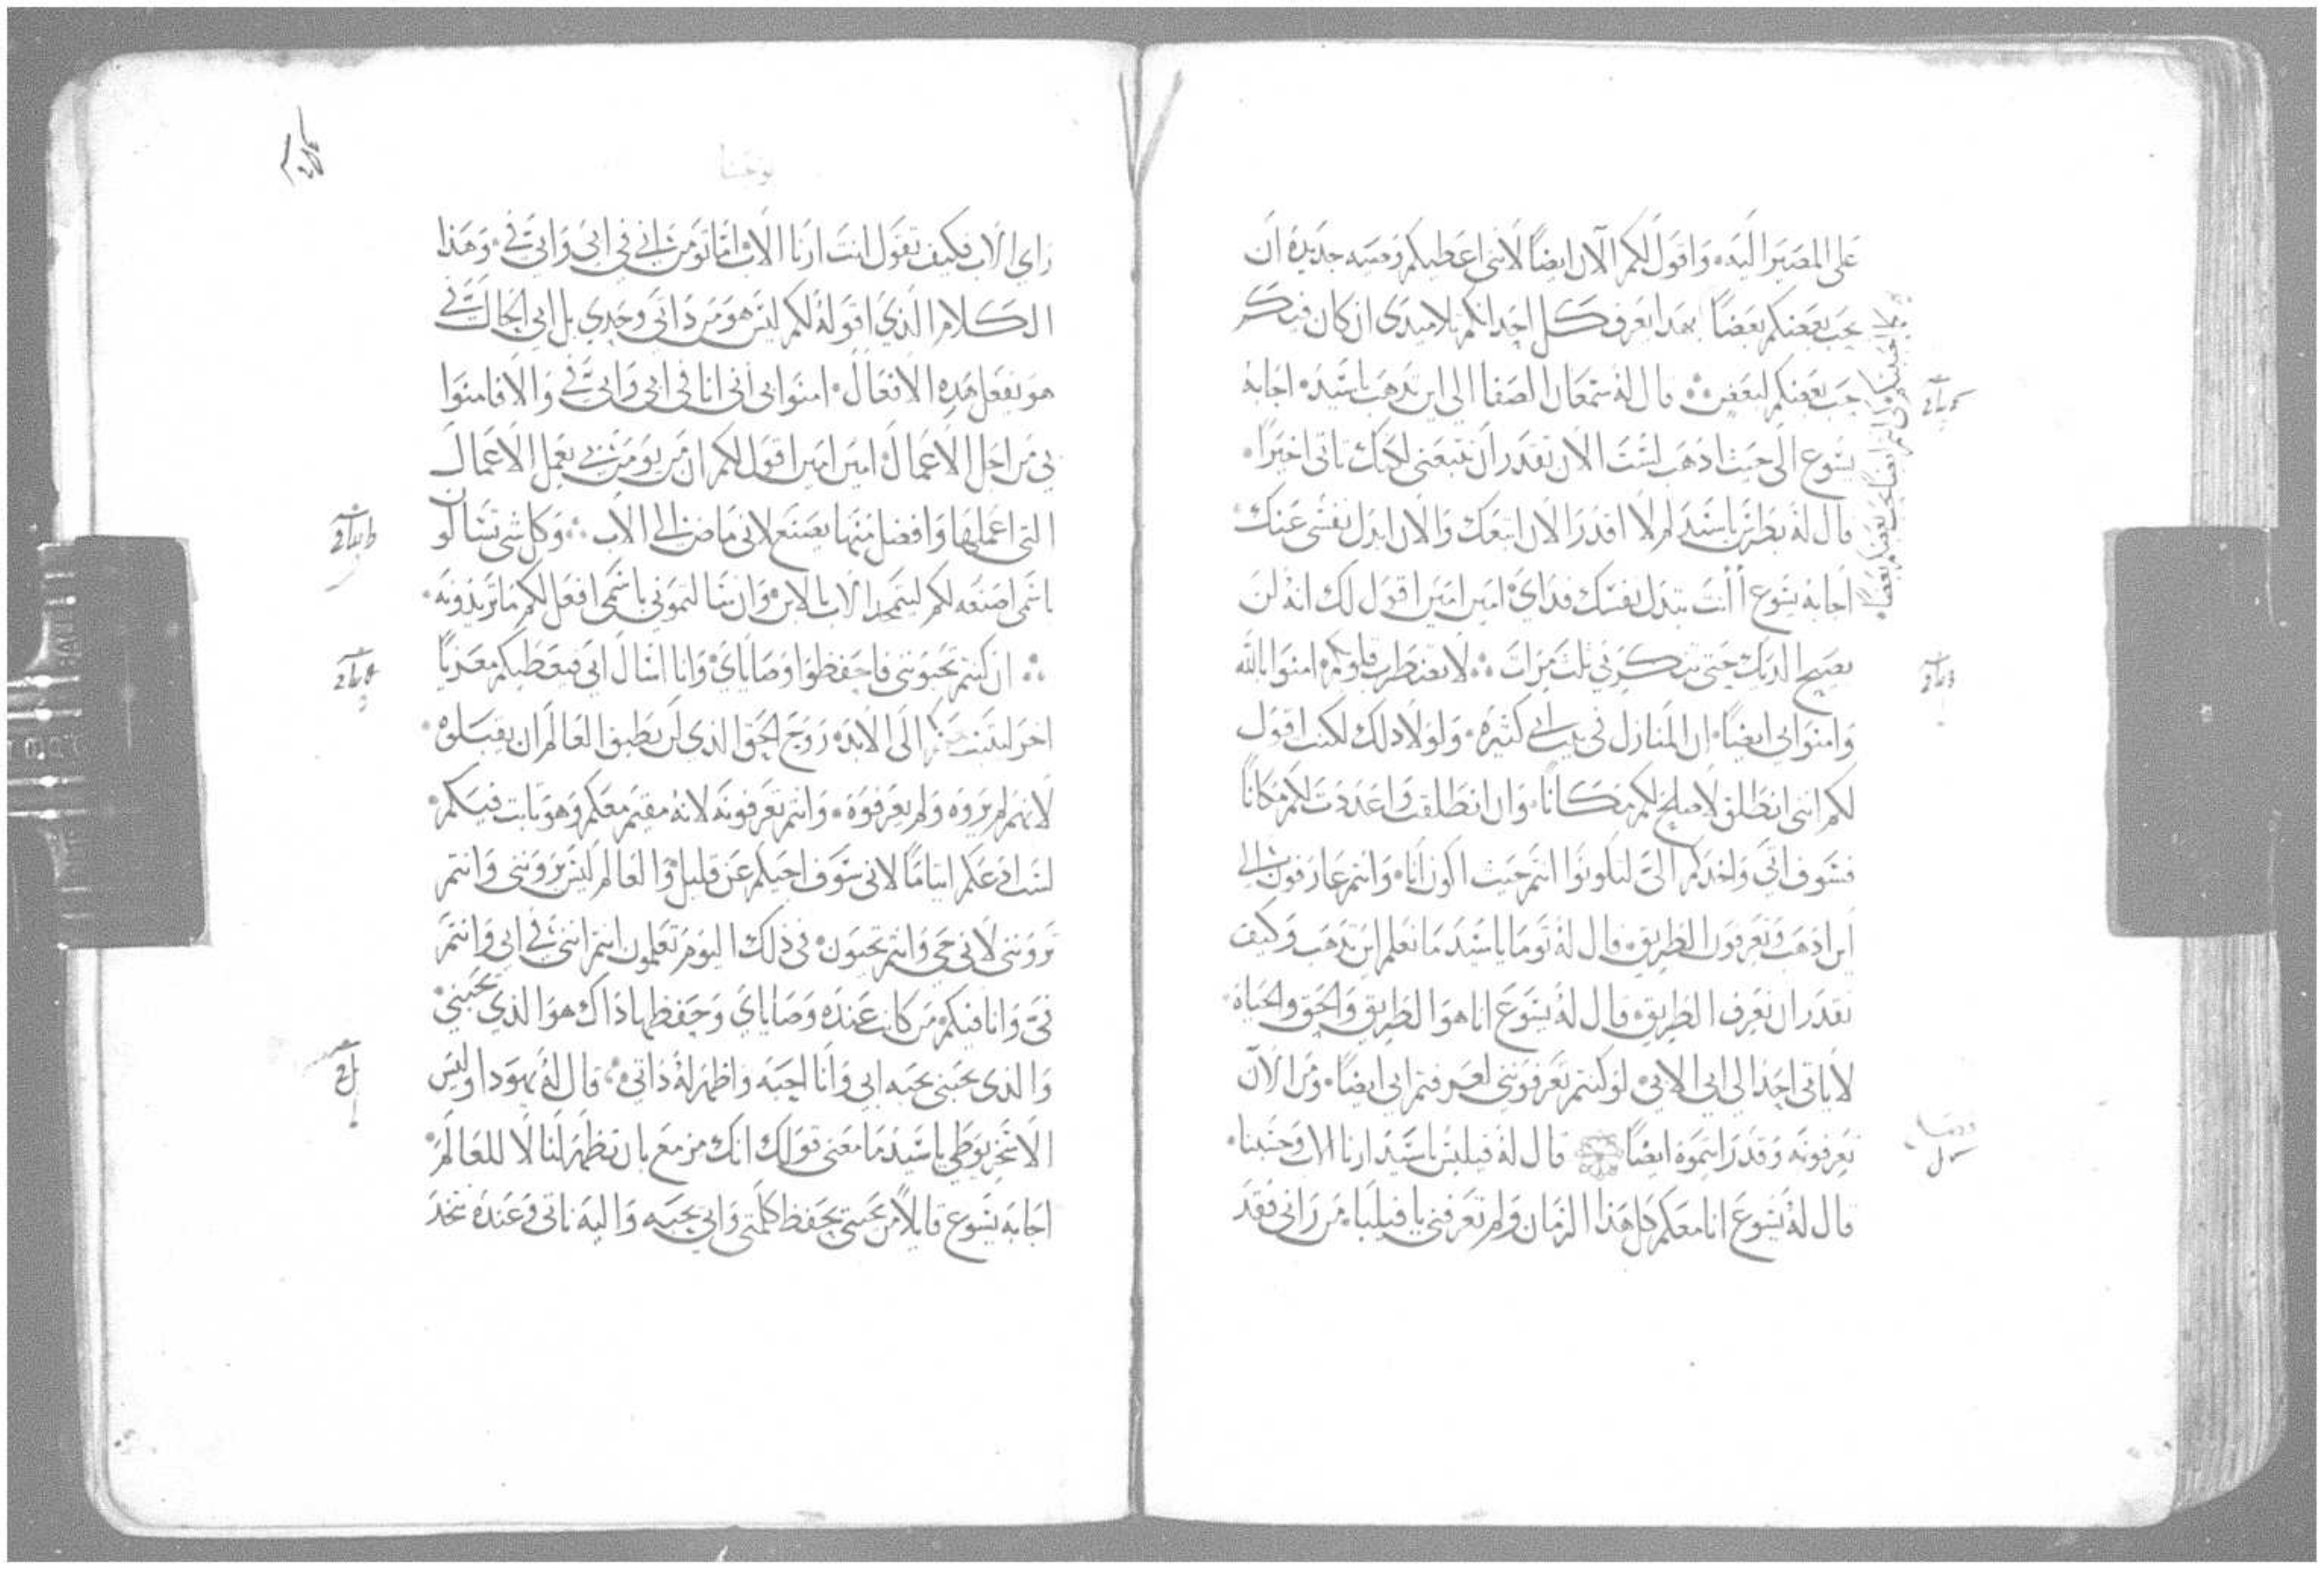 على المصير اليه، واقول لكم الآن ايضاً لاننى اعطيكم وصيه جديدة ان
يحب بعضكم بعضاً بهدا يعرف كل احد انكم تلاميدى ان كان فيكم
حب بعضكم لبعض ∴ قال له شمعان الصفا الى اين تدهب يا سيد، اجابه
يسوع الى حيث ادهب لست الان تقدر ان تتبعنى لكنك تاتى اخيراً،
قال له بطرس يا سيد لم لا اقدر الان اتبعك والان ابدل نفسى عنك
اجابه يسوع أأنت تبدل نفسك فداى، امين امين اقول لك انه لن
يصيح الديك حتى تنكرنى ثلث مرات ∴ لا تضطرب قلوبكم، امنوا بالله
وامنوا بى ايضاً، ان المنازل فى بيت ابى كثيرة، ولولا دلك لكنت اقول
لكم اننى انطلق لاصلح لكم مكاناً، وان انطلقت واعددت لكم مكاناً
فسوف اتى واخدكم الىّ لتكونوا انتم حيث اكون انا، وانتم عارفون الى
اين ادهب وتعرفون الطريق، قال له توما يا سيد ما نعلم اين تدهب وكيف
نقدر ان نعرف الطريق، قال له يسوع انا هو الطريق والحق والحياة
لا ياتى احد الى ابى الا بى، لو كنتم تعرفوننى لعرفتم ابى ايضاً، ومن الآن
تعرفونه وقد رايتموه ايضاً قال له فيلبس يا سيد ارنا الاب وحسبنا،
قال له يسوع انا معكم كل هذا الزمان ولم تعرفنى يا فيلبا، من رانى فقد
كما احببتكم انتم ايضا يحب بعضكم بعضاً
يوحنا
راى الاب فكيف تقول انت ارنا الاب اما تومن انى فى ابى وابى فىّ، وهذا
الكلام الذى اقوله لكم ليس هو من داتى وحدى بل ابى الحال فىّ
هو يفعل هده الافعال، امنوا بى انى انا فى ابى وابى فىّ والا فامنوا
بى من اجل الاعمال، امين امين اقول لكم ان من يومن بى يعمل الاعمال
التى اعملها وافضل منها يصنع لانى ماض الى الاب ∴ وكل شى تسالون
باسمى اصنعه لكم ليتمجد الاب بالابن، وان سالتمونى باسمى افعل لكم ما تريدونه،
∴ ان كنتم تحبوننى فاحفظوا وصاياى، وانا اسال ابى فيعطيكم معزياً
اخر ليثبت الى الابد، روح الحق الذى لن يطيق العالم ان يقبلوه،
لانهم لم يروه ولم يعرفوه، وانتم تعرفونه لانه مقيم معكم وهو ثابت فيكم،
لست ادعكم ايتاما لانى سوف اجيكم عن قليل، والعالم ليس يروننى وانتم
تروننى لانى حى وانتم تحيون، فى ذلك اليوم تعلمون انتم اننى فى ابى وانتم
فىّ وانا فيكم، من كانت عنده وصاياى وحفظها داك هو الذى يحبنى،
والذى يحبنى يحبه ابى وانا احبه واظهر له ذاتى، قال له يهودا وليس
الاسخريوطى يا سيد ما معنى قولك انك مزمع بان تظهر لنا لا للعالم،
اجابه يسوع قايلاً من يحبنى يحفظ كلمتى وابى يحبه واليه ناتى وعنده نتخد